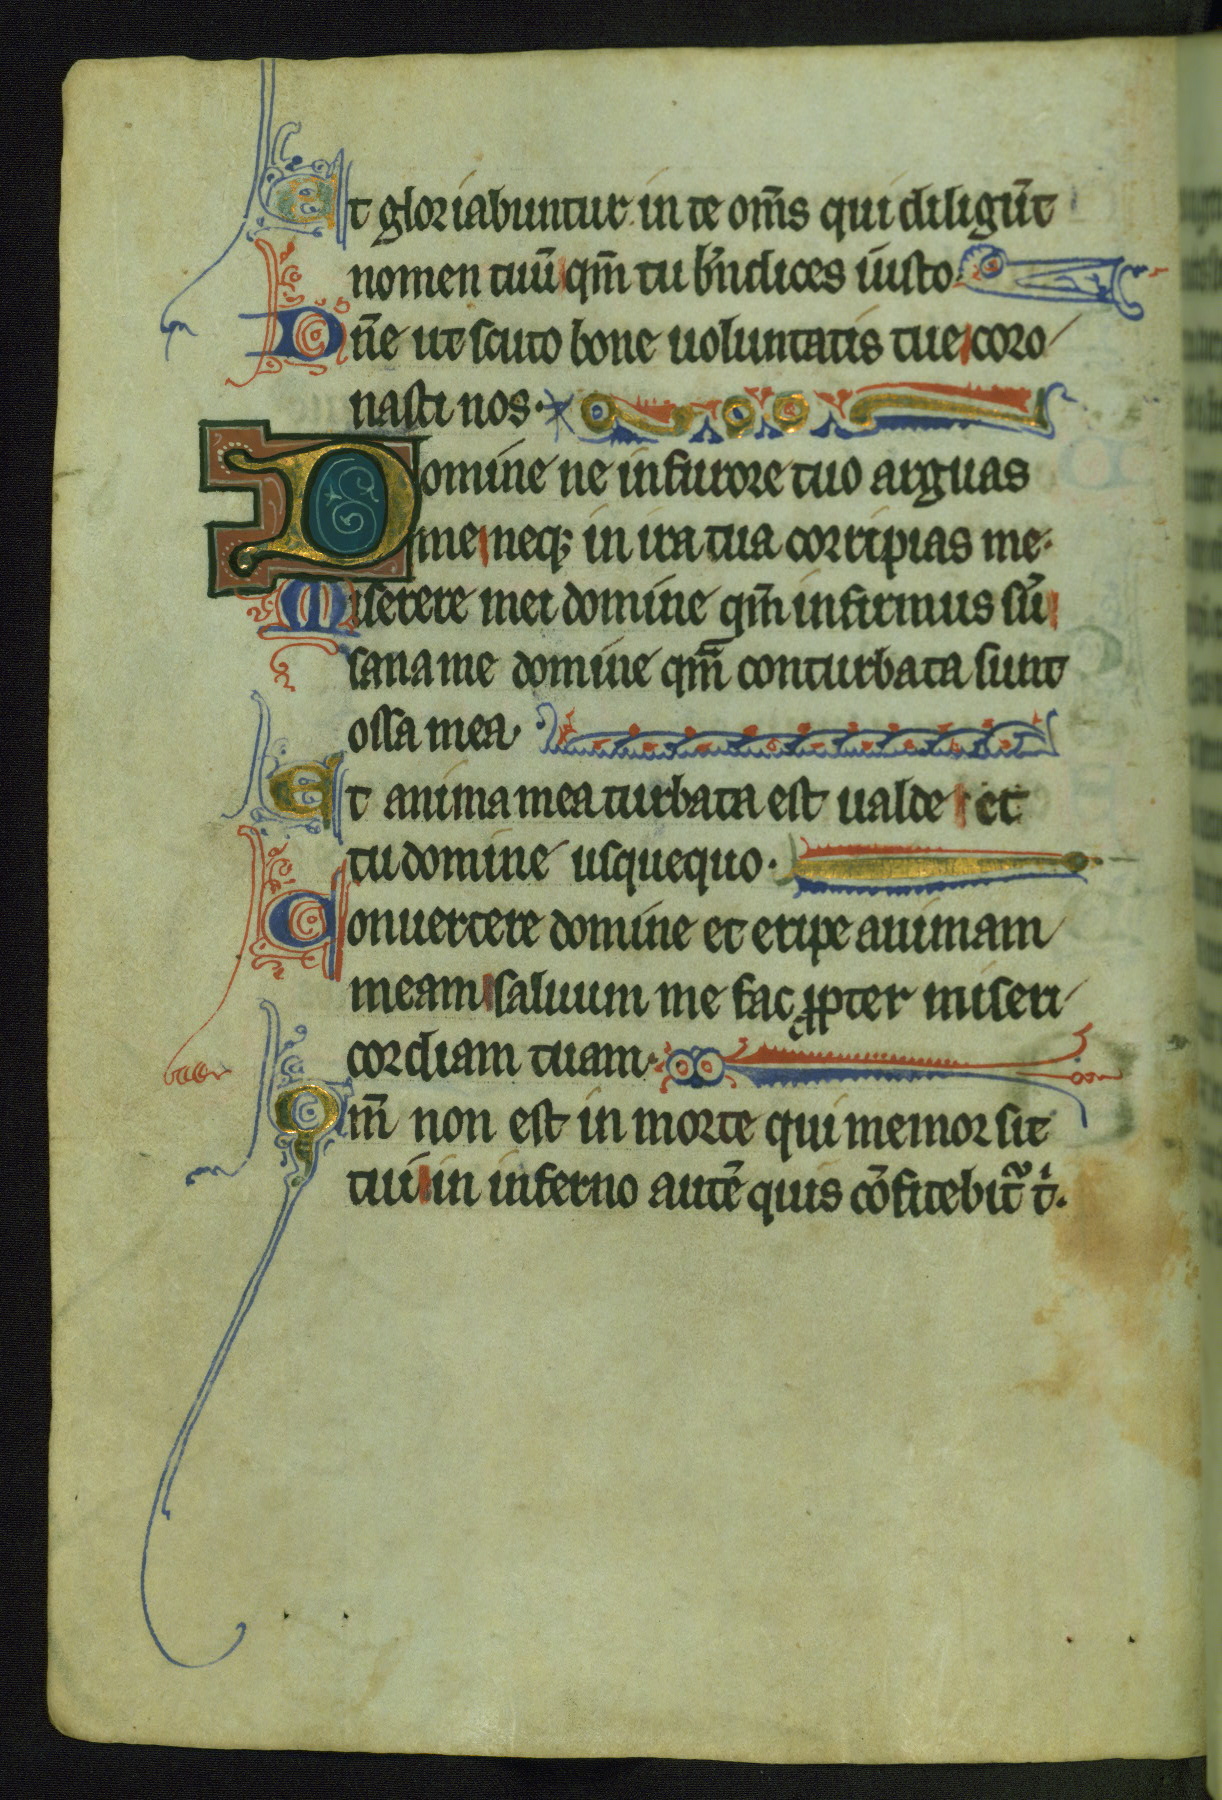 Et gloriabuntur in te om̄s qui diligūt
nomen tuū qm̄ tu bn̄dices iusto
Dn̄e ut scuto bone uoluntatis tue coro
nasti nos.
Domine ne in furore tuo arguas
me neq; in ira tua corripias me.
Miserere mei domine qm̄ infirmus sū
sana me domine qm̄ conturbata sunt
ossa mea.
Et anima mea turbata est ualde et
tu domine usquequo.
Conuertere domine et eripe animam
meam saluum me fac ꝓpter miseri
cordiam tuam.
Qm̄ non est in morte qui memor sit
tui in inferno autē quis cōfitebit᷑ tⁱ.